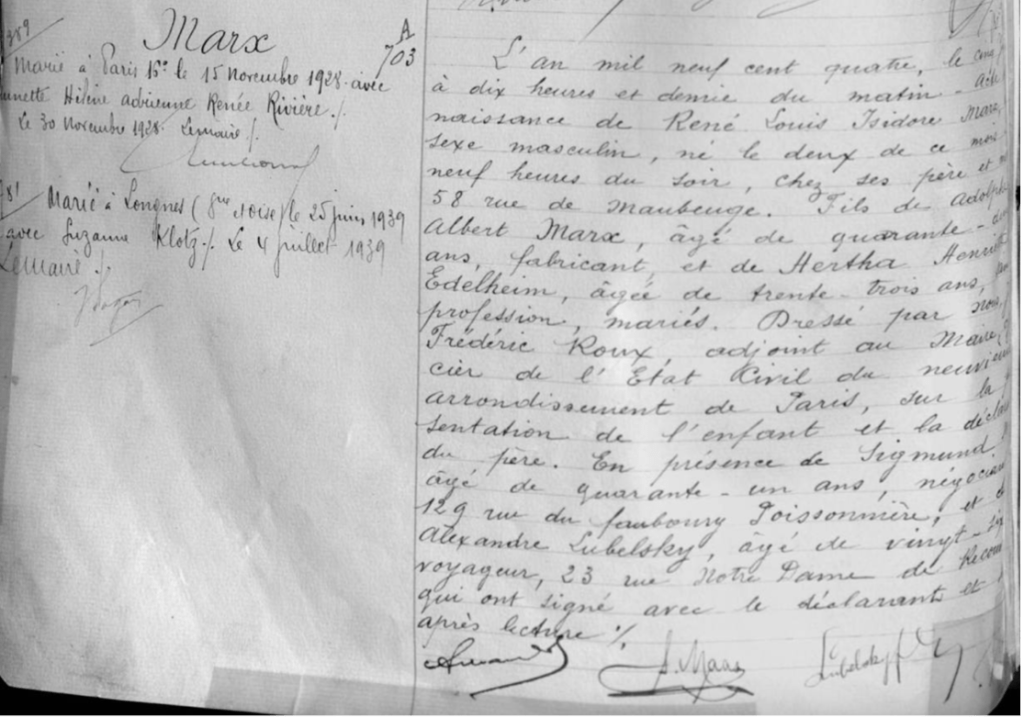 Marx
A
703
Marié à Paris 16e le 15 Novembre 1928 avec
Hélène Adrienne Renée Rivière ./.
Le 30 Novembre 1928 Lemaire /.
Marié à Longnes (Sne & Oise) le 25 juin 1939
avec Suzanne Klotz ./. Le 4 juillet 1939
Lemaire /.
L'an mil neuf cent quatre, le cinq
à dix heures et demie du matin - Acte
naissance de René Louis Isidore Marx,
sexe masculin, né le deux de ce mois
neuf heures du soir, chez ses père et
58 rue de Maubeuge. Fils de Adolphe
Albert Marx, âgé de quarante-
ans, fabricant, et de Hertha Henriette
Edelheim, âgée de trente-trois ans,
profession, mariés. Dressé par nous,
Frédéric Roux, adjoint au Maire,
cier de l'Etat Civil du neuvième
arrondissement de Paris, sur la
sentation de l'enfant et la décla
du père. En présence de Sigmund
âgé de quarante-un ans, négociant
129 rue du faubourg Poissonnière, et
Alexandre Lubelsky, âgé de vingt-six
voyageur, 23 rue Notre Dame de Recou
qui ont signé avec le déclarant et
après lecture ./.
A. Marx
S. Maas
Lubelsky